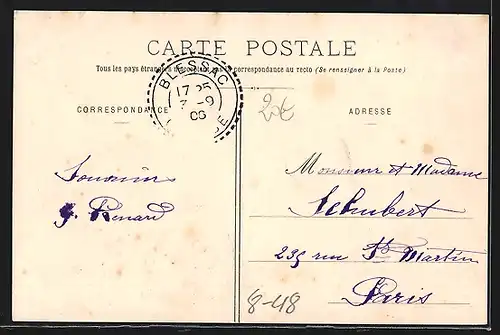 CARTE POSTALE
Tous les pays étrangers n'acceptent pas la correspondance au recto (Se renseigner à la Poste)
BLESSAC
17 25
7 -9
06
CORRESPONDANCE
ADRESSE
20€
Souvenir
J. Renard
Monsieur et Madame
Schubert
235 rue St Martin
Paris
8-48